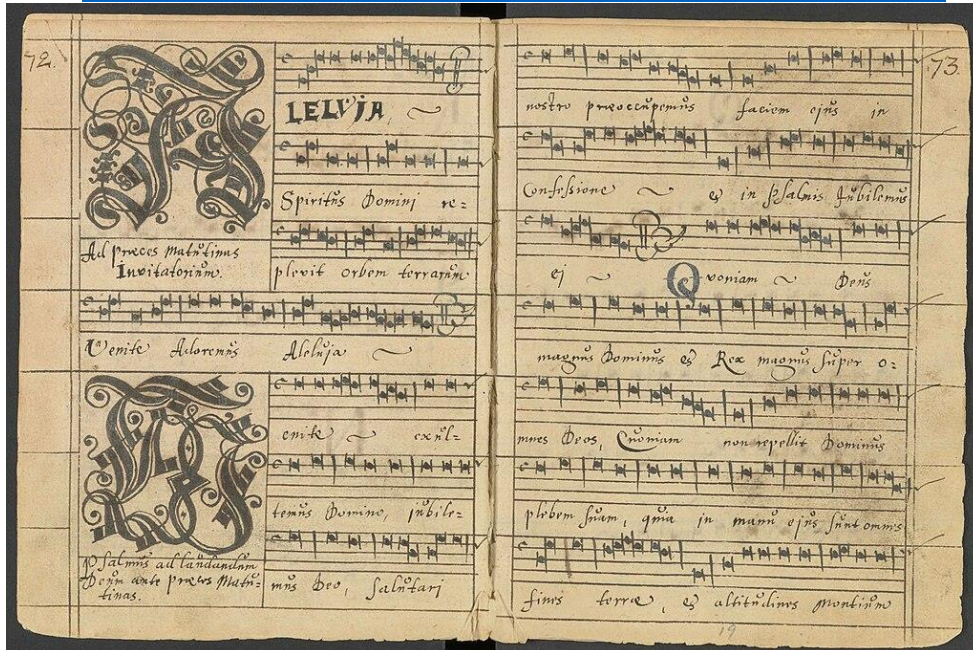 72.
LELUJA
Spiritus Domini re=
plevit orbem terrarum
Ad præces Matutinas
Invitatorium.
Venite Adoremus Aleluja
enite exul=
temus Domino, jubile=
mus Deo, Salutari
Psalmus ad laudandum
Deum ante præces Matu=
tinas.
73.
nostro præoccupemus faciem ejus in
Confessione & in Psalmis Jubilemus
ej Quoniam Deus
magnus Dominus & Rex magnus super o=
mnes Deos, Quoniam non repellit Dominus
plebem suam, quia in manu ejus sunt omnes
fines terræ, & altitudines montium
19